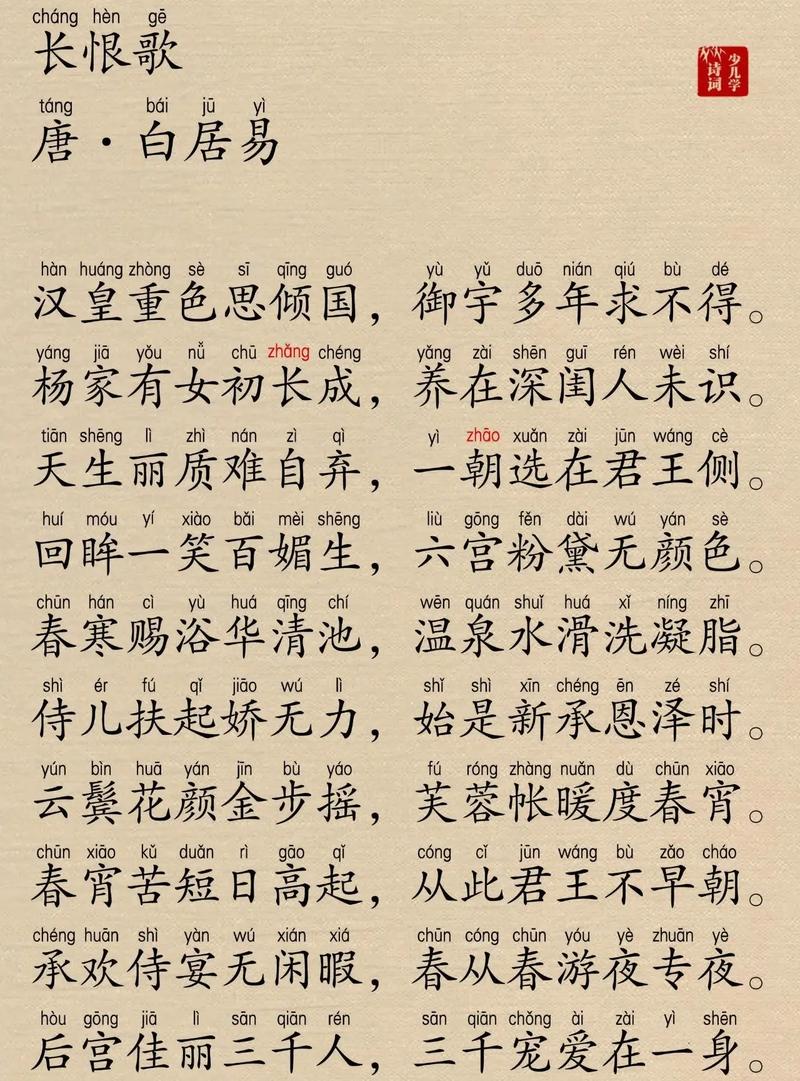 cháng hèn gē
长恨歌
táng bái jū yì
唐·白居易
少儿学
诗词
hàn huáng zhòng sè sī qīng guó yù yǔ duō nián qiú bù dé
汉皇重色思倾国，御宇多年求不得。
yáng jiā yǒu nǚ chū zhǎng chéng yǎng zài shēn guī rén wèi shí
杨家有女初长成，养在深闺人未识。
tiān shēng lì zhì nán zì qì yì zhāo xuǎn zài jūn wáng cè
天生丽质难自弃，一朝选在君王侧。
huí móu yí xiào bǎi mèi shēng liù gōng fěn dài wú yán sè
回眸一笑百媚生，六宫粉黛无颜色。
chūn hán cì yù huá qīng chí wēn quán shuǐ huá xǐ níng zhī
春寒赐浴华清池，温泉水滑洗凝脂。
shì ér fú qǐ jiāo wú lì shǐ shì xīn chéng ēn zé shí
侍儿扶起娇无力，始是新承恩泽时。
yún bìn huā yán jīn bù yáo fú róng zhàng nuǎn dù chūn xiāo
云鬓花颜金步摇，芙蓉帐暖度春宵。
chūn xiāo kǔ duǎn rì gāo qǐ cóng cǐ jūn wáng bù zǎo cháo
春宵苦短日高起，从此君王不早朝。
chéng huān shì yàn wú xián xiá chūn cóng chūn yóu yè zhuān yè
承欢侍宴无闲暇，春从春游夜专夜。
hòu gōng jiā lì sān qiān rén sān qiān chǒng ài zài yì shēn
后宫佳丽三千人，三千宠爱在一身。